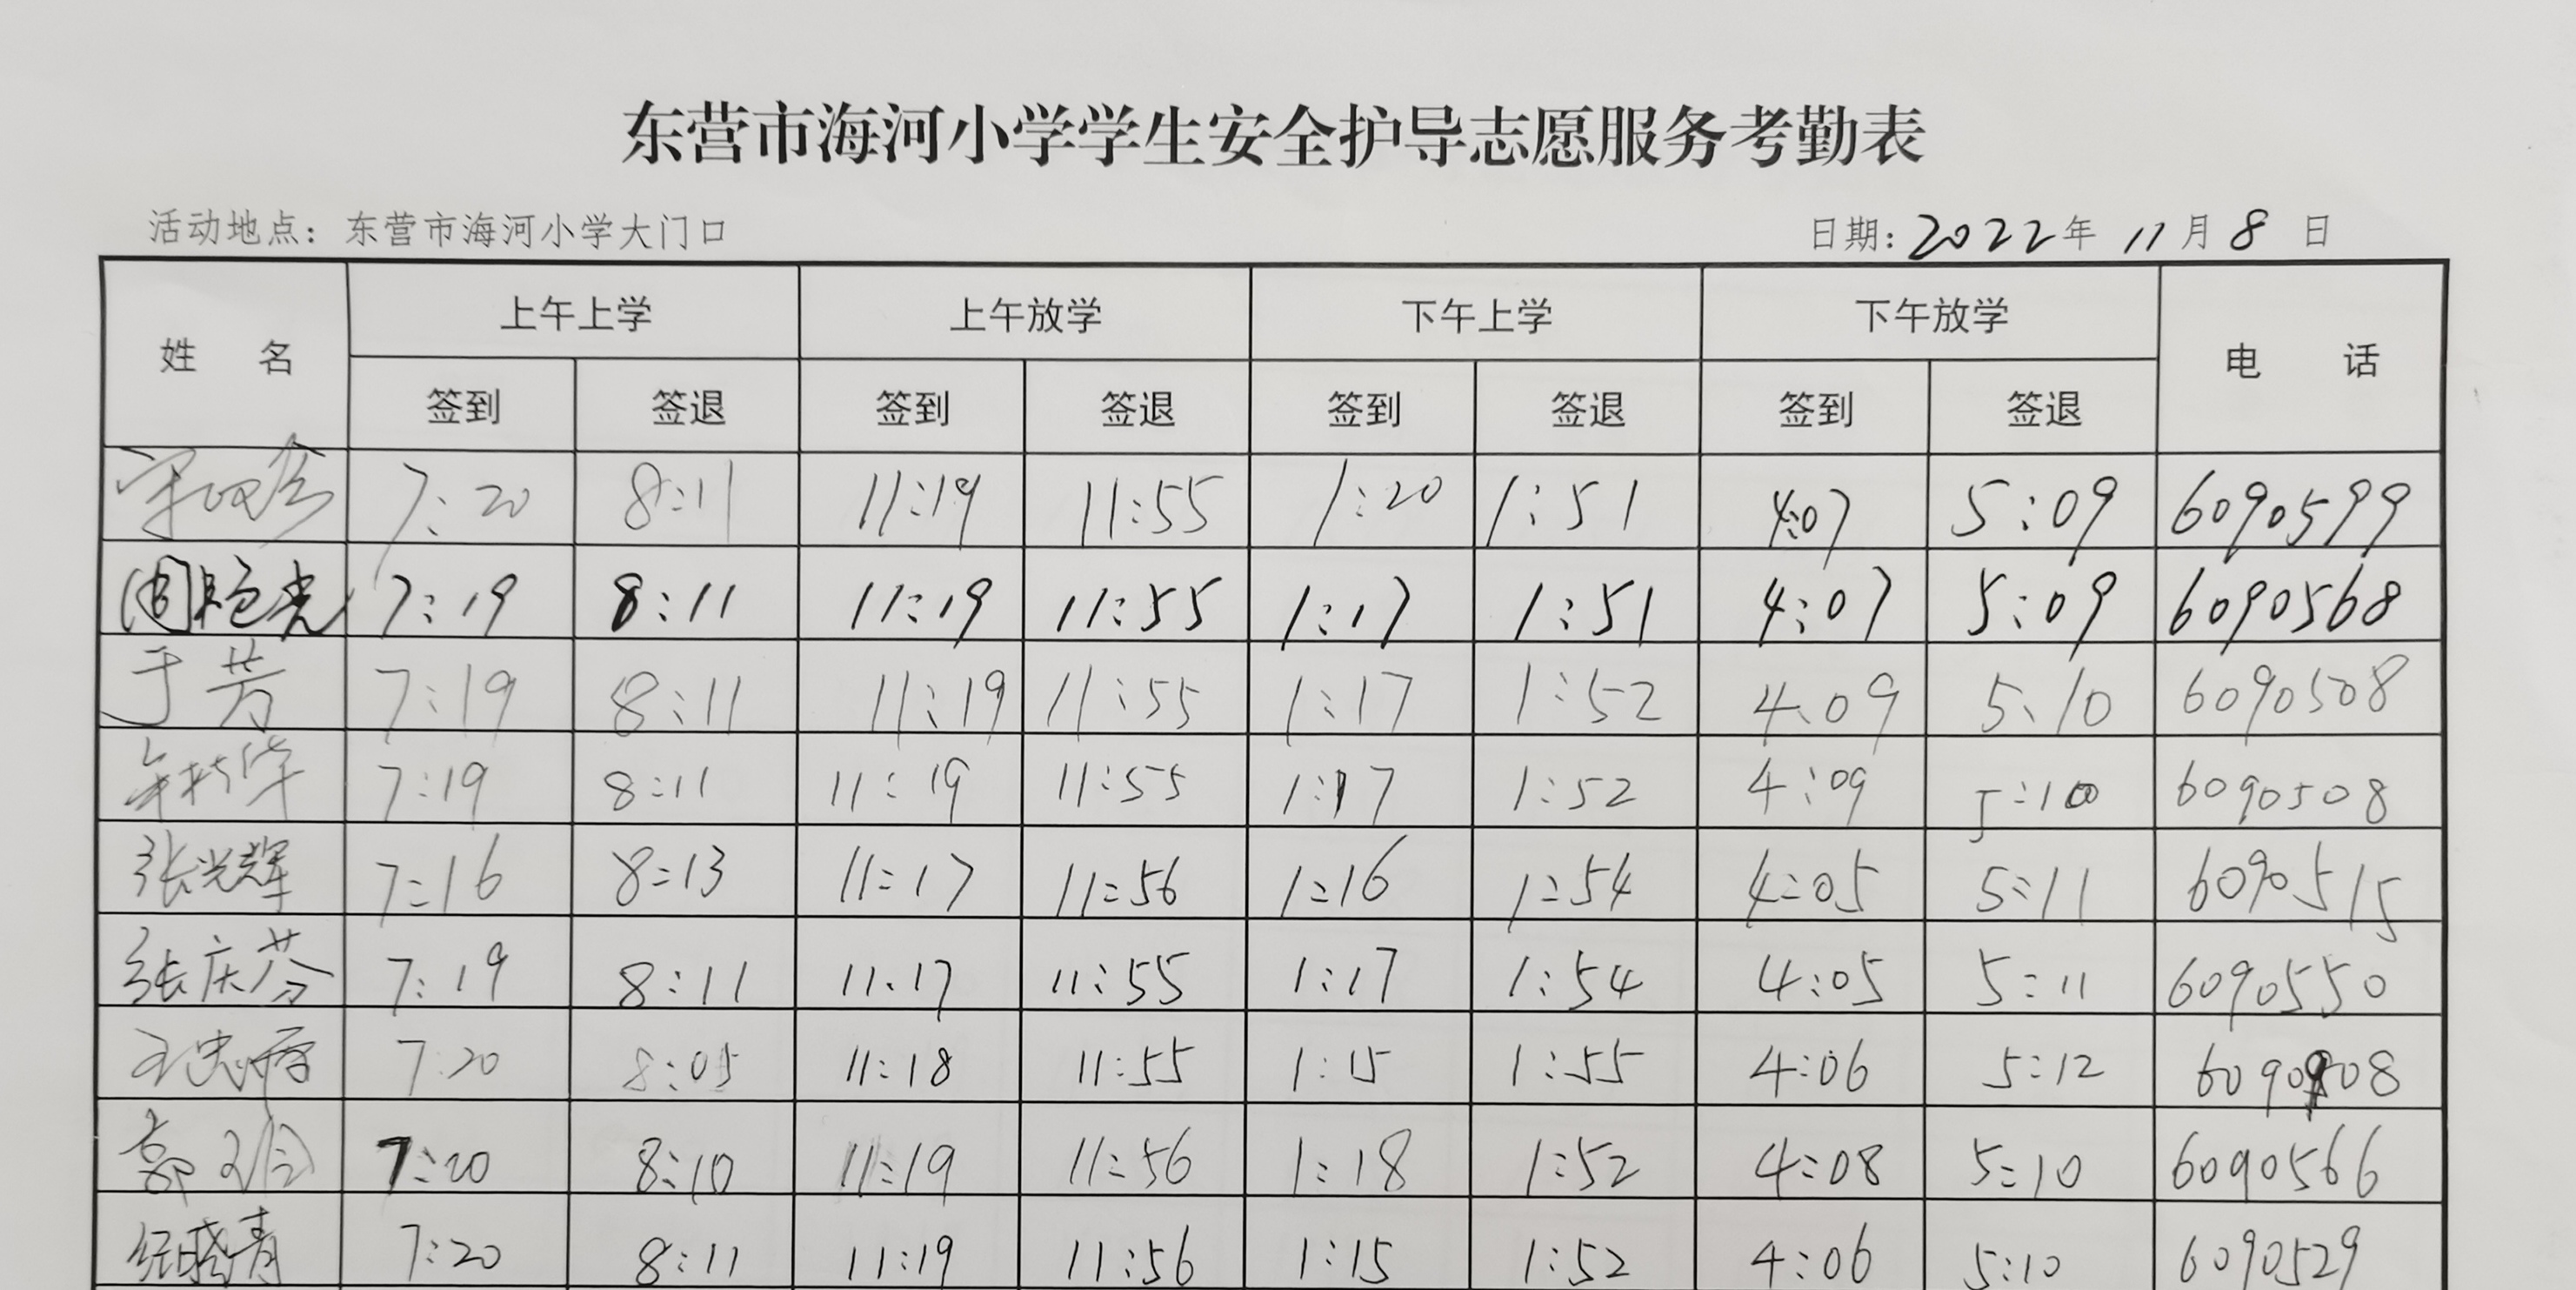 东营市海河小学学生安全护导志愿服务考勤表
活动地点：东营市海河小学大门口 日期：2022年 11月 8 日
姓 名 上午上学 上午放学 下午上学 下午放学 电 话
签到 签退 签到 签退 签到 签退 签到 签退
7:20 8:11 11:19 11:55 1:20 1:51 4:07 5:09 6090599
7:19 8:11 11:19 11:55 1:17 1:51 4:07 5:09 6090568
于芳 7:19 8:11 11:19 11:55 1:17 1:52 4:09 5:10 6090508
7:19 8:11 11:19 11:55 1:17 1:52 4:09 5:10 6090508
张光辉 7:16 8:13 11:17 11:56 1:16 1:54 4:05 5:11 6090515
张庆芬 7:19 8:11 11:17 11:55 1:17 1:54 4:05 5:11 6090550
7:20 8:05 11:18 11:55 1:15 1:55 4:06 5:12
7:20 8:10 11:19 11:56 1:18 1:52 4:08 5:10 6090566
任晓青 7:20 8:11 11:19 11:56 1:15 1:52 4:06 5:10 6090529